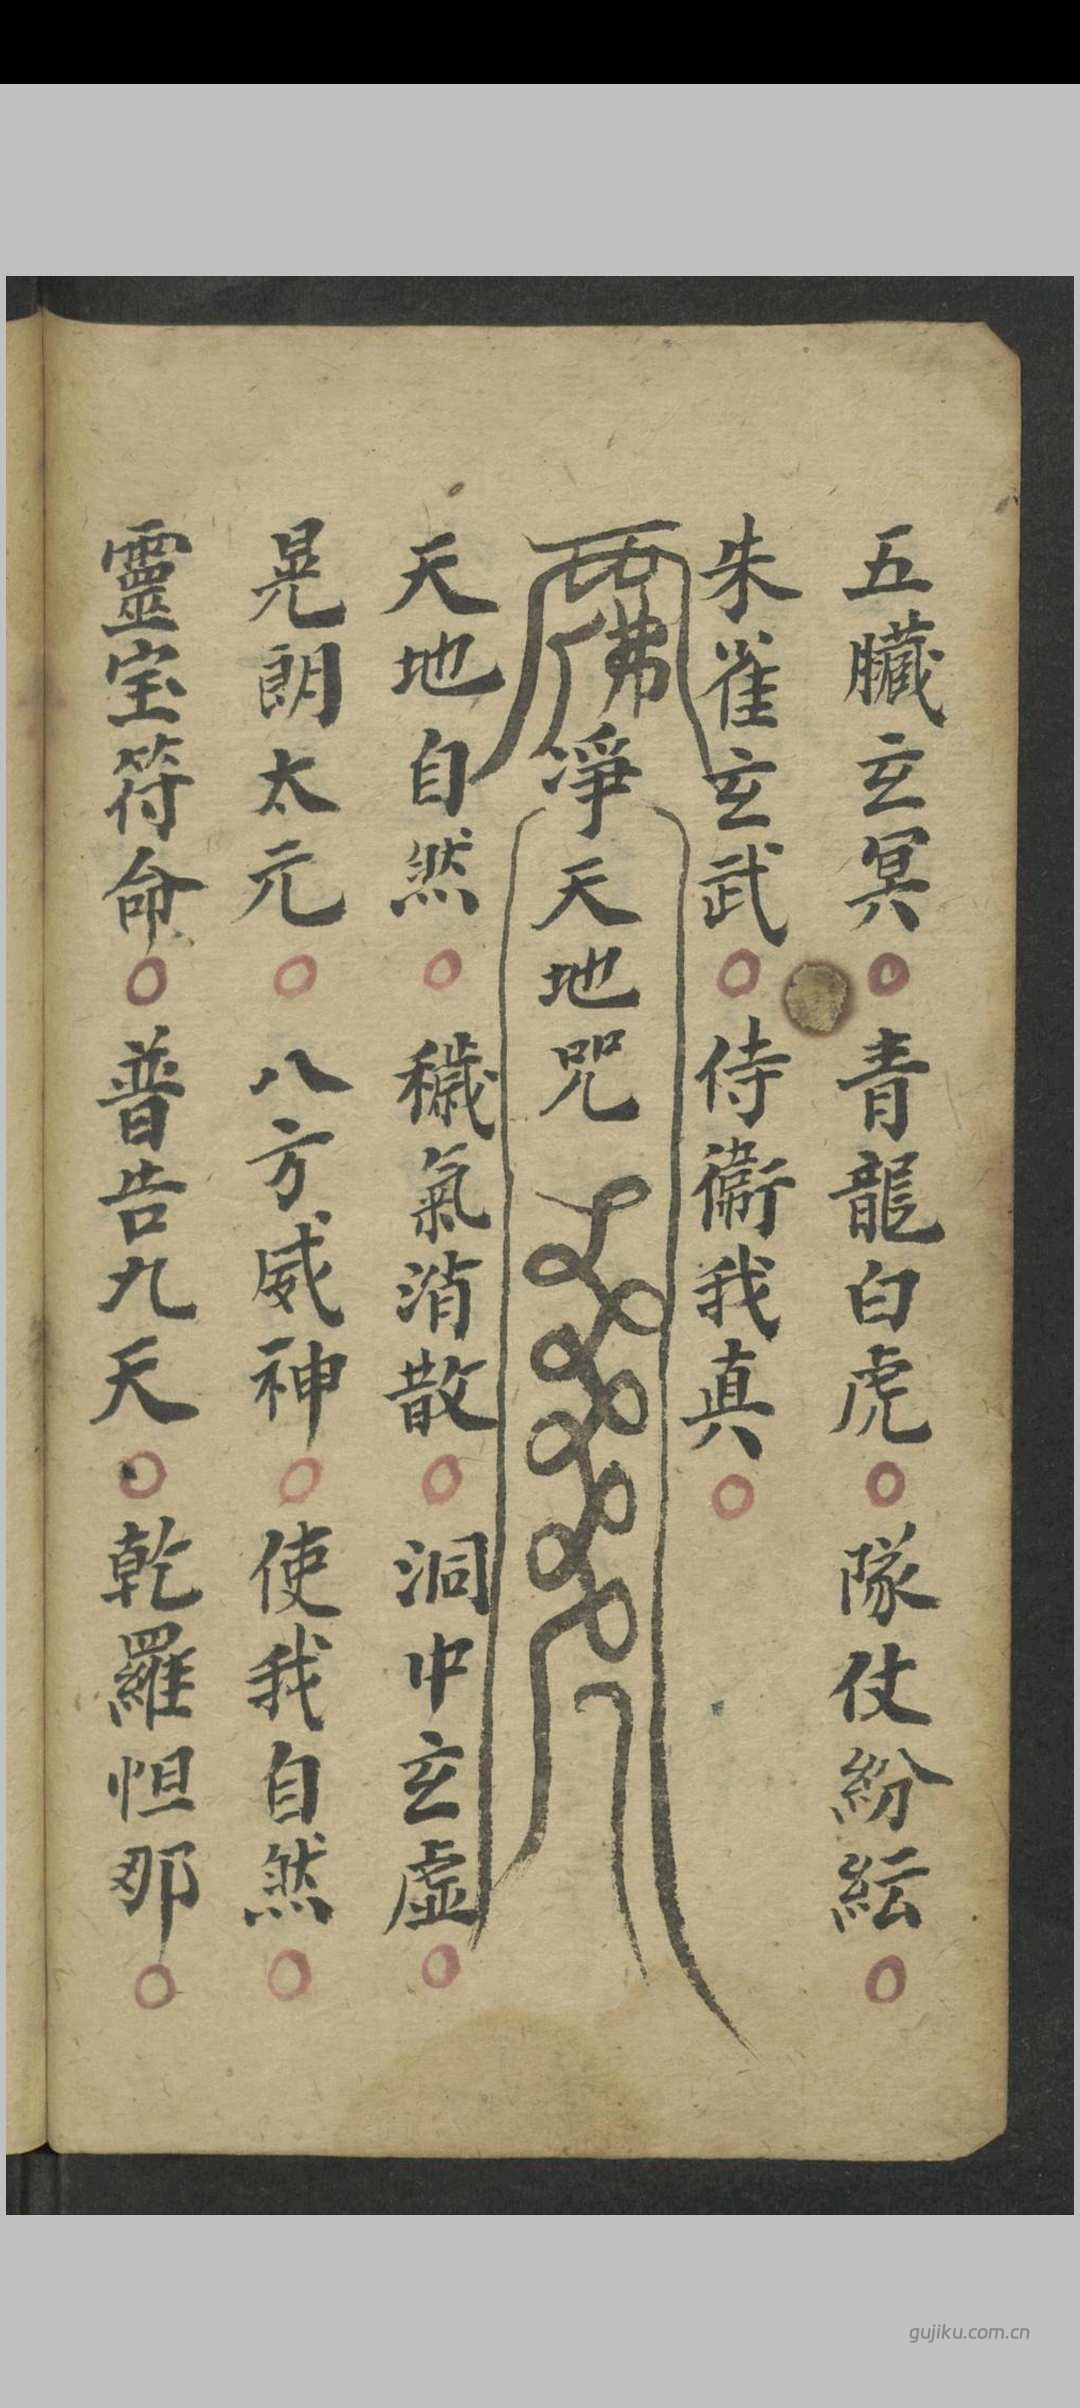 五臟玄冥○青龍白虎○隊仗紛紜○
朱雀玄武○侍衛我真○
佛淨天地咒
天地自然○穢氣消散○洞中玄虛○
晃朗太元○八方威神○使我自然○
靈宝符命○普告九天○乾羅怛那○
gujiku.com.cn